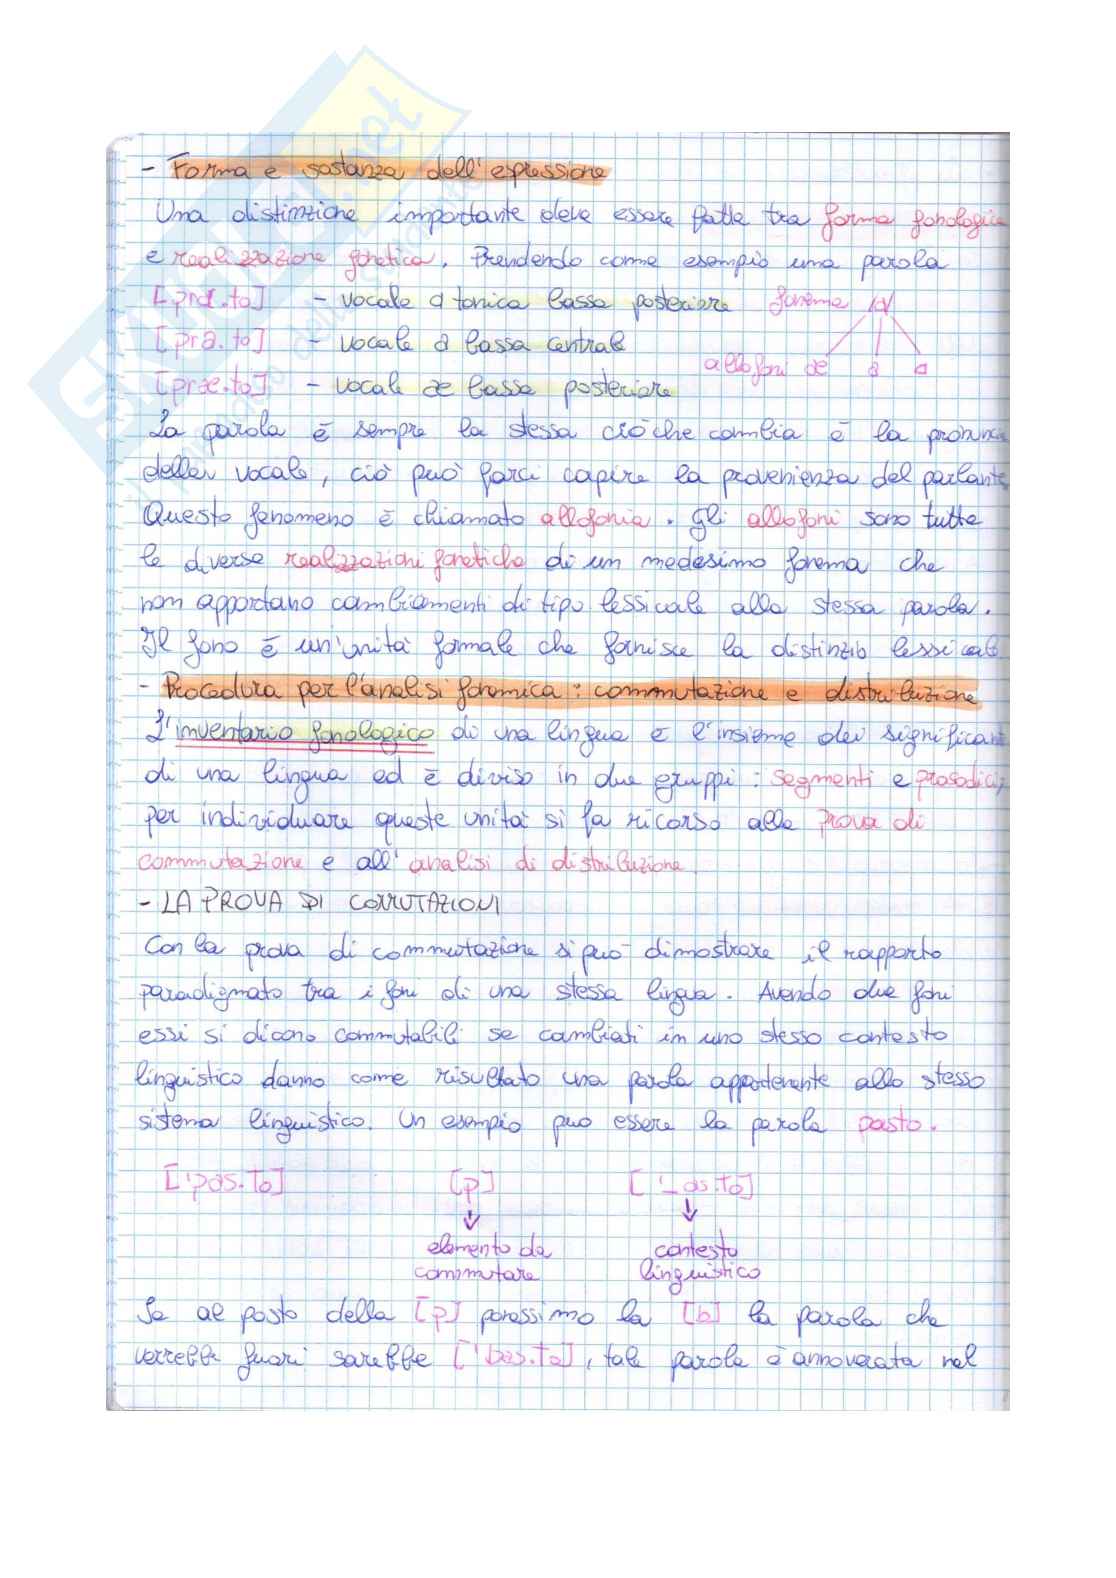 - Forma e sostanza dell'espressione
Una distinzione importante deve essere fatta tra forma fonologica
e realizzazione fonetica. Prendendo come esempio una parola
[prɑ.to] - vocale ɑ tonica bassa posteriore fonema /a/
[pra.to] - vocale a bassa centrale
allofoni æ a ɑ
[præ.to] - vocale æ bassa posteriore
La parola è sempre la stessa ciò che cambia è la pronuncia
della vocale, ciò può farci capire la provenienza del parlante
Questo fenomeno è chiamato allofonia. Gli allofoni sono tutte
le diverse realizzazioni fonetiche di un medesimo fonema che
non apportano cambiamenti di tipo lessicale alla stessa parola.
Il fono è un'unità formale che fornisce la distinzio lessicale
- Procedura per l'analisi fonemica: commutazione e distribuzione
L'inventario fonologico di una lingua è l'insieme dei significanti
di una lingua ed è diviso in due gruppi: segmenti e prosodici,
per individuare queste unità si fa ricorso alla prova di
commutazione e all'analisi di distribuzione.
- LA PROVA DI COMMUTAZIONI
Con la prova di commutazione si può dimostrare il rapporto
paradigmato tra i foni di una stessa lingua. Avendo due foni
essi si dicono commutabili se cambiati in uno stesso contesto
linguistico danno come risultato una parola appartenente allo stesso
sistema linguistico. Un esempio può essere la parola pasto.
['pas.to] [p] ['_as.to]
elemento da contesto
commutare linguistico
Se al posto della [p] ponessimo la [b] la parola che
verrebbe fuori sarebbe ['bas.to], tale parola è annoverata nel